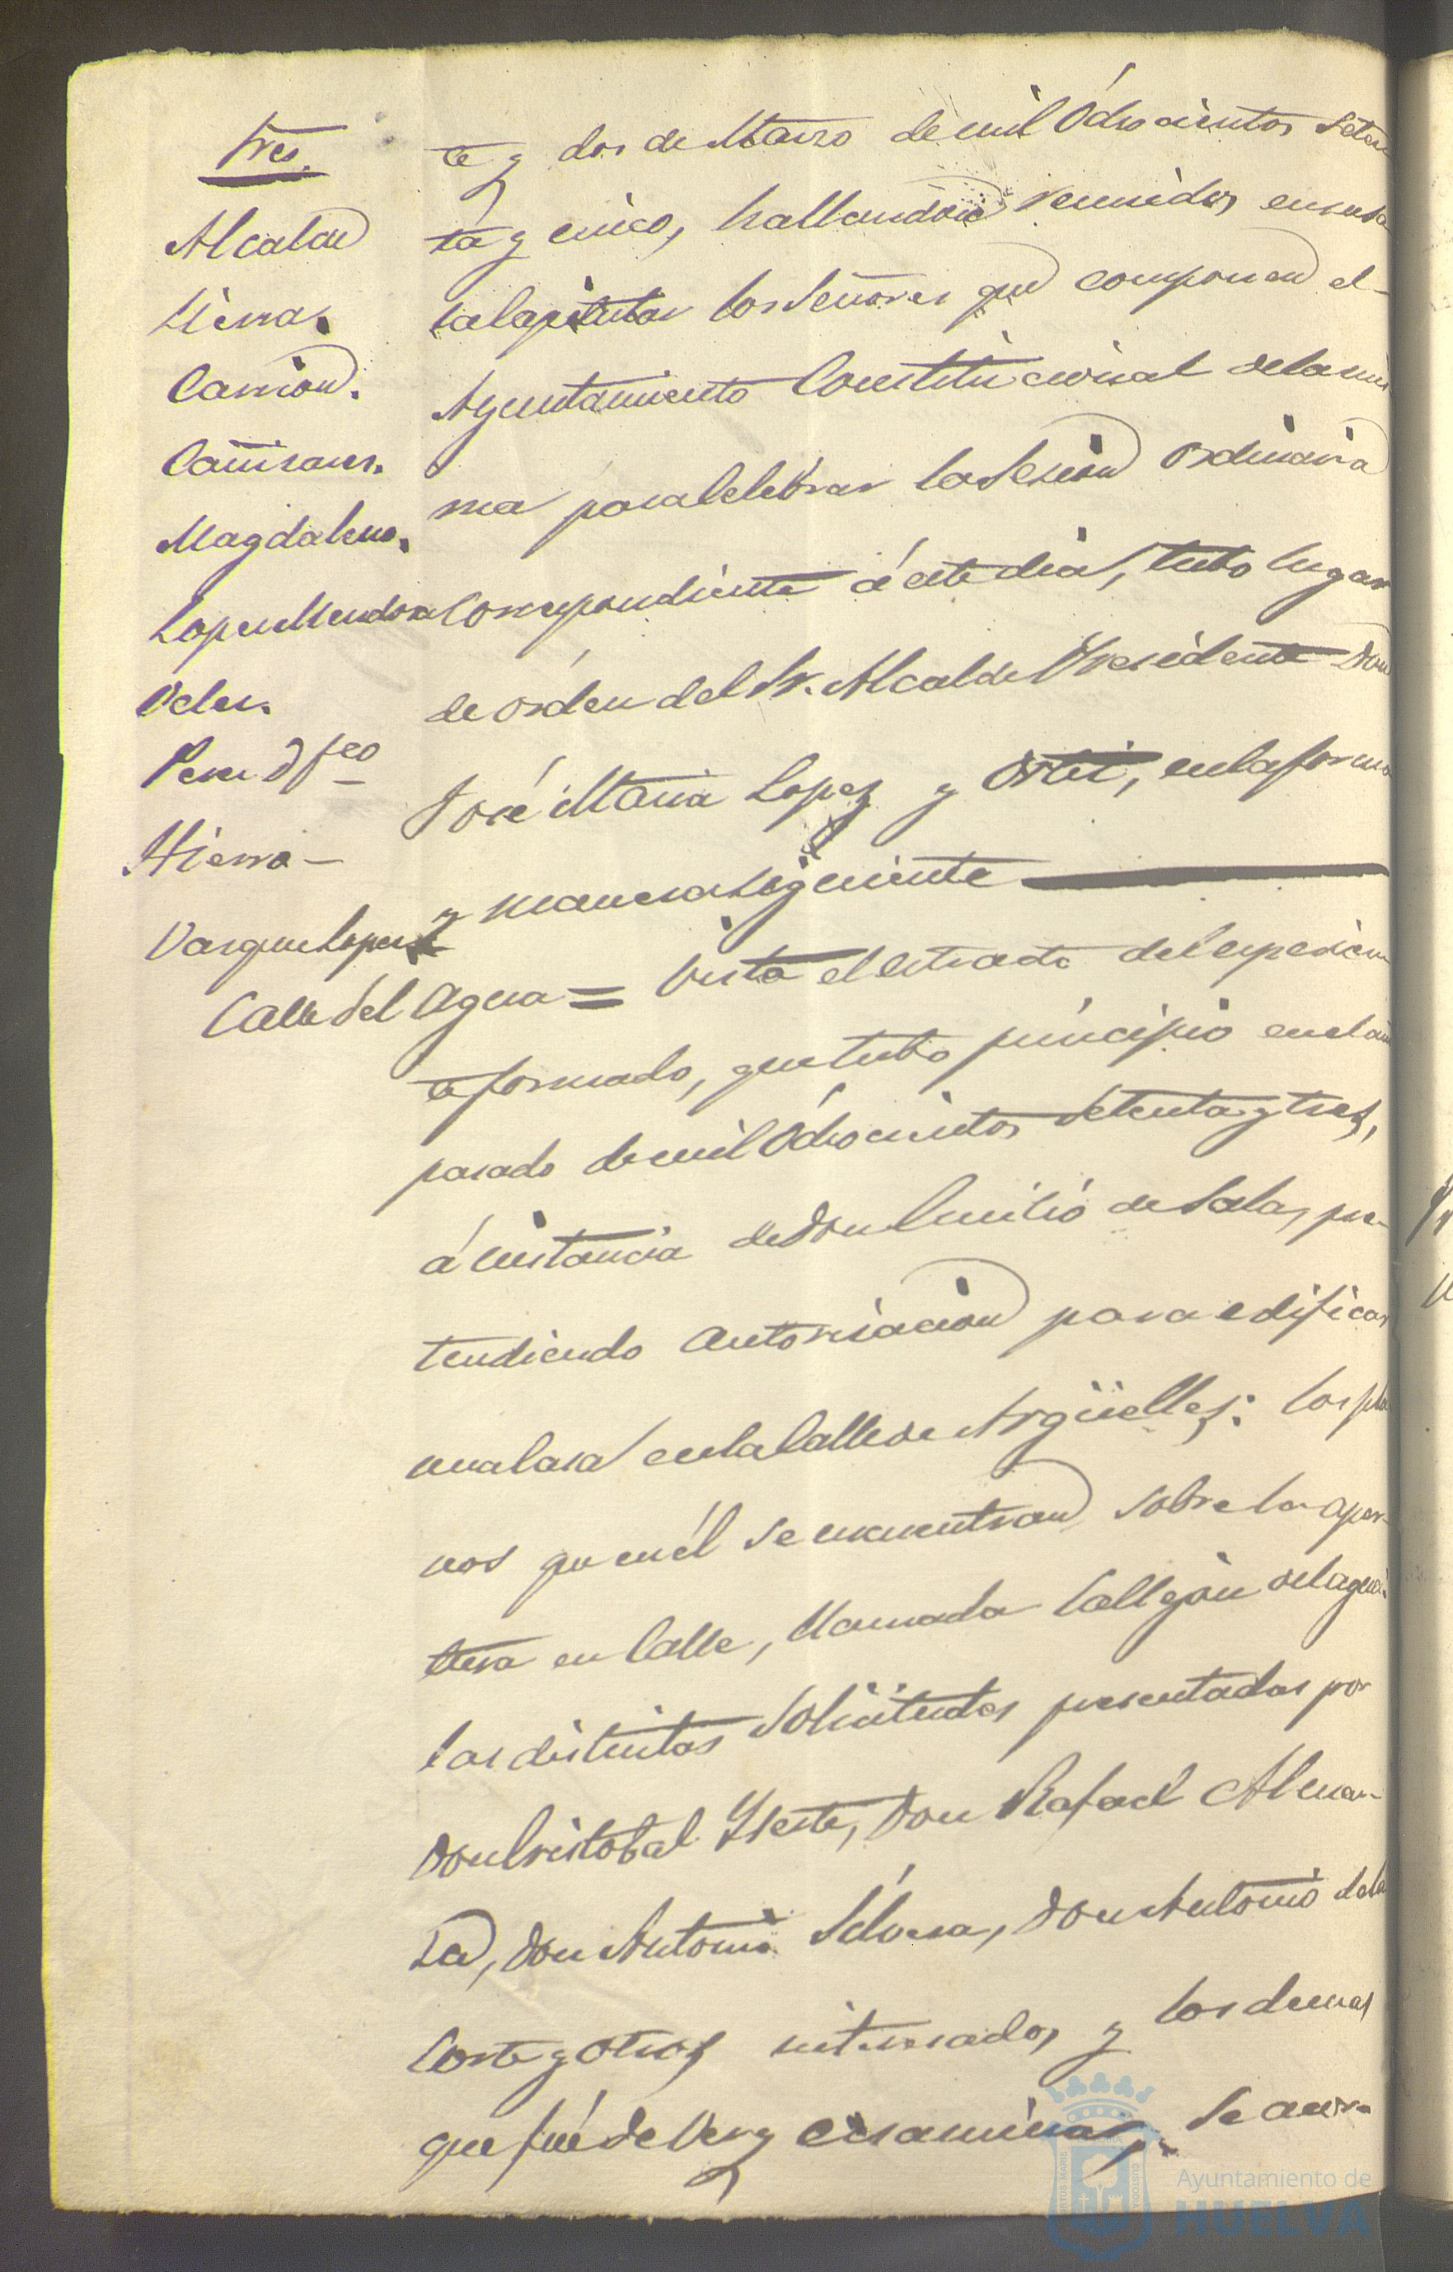 Sres.
Alcalde
Sierra.
Carrion.
Cañizares.
Magdaleno.
Lopez Mendoza
Velez.
Perez D. Fco
Hierro —
Vazquez Lopez
te y dos de Marzo de mil Ochocientos Seten-
ta y cinco, hallandose reunidos en su sa-
la Capitular los Señores que componen el
Ayuntamiento Constitucional de la mis-
ma para Celebrar la Sesion Ordinaria
Correspondiente á este dia, tubo lugar
de órden del Sr. Alcalde Presidente Don
José Maria Lopez y Ortiz, en la forma
y manera siguiente
Calle del Agua = Visto el estracto del espedien-
te formado, que tubo principio en el año
pasado de mil Ochocientos Setenta y tres,
á instancia de Don Emilio de Salas, pre-
tendiendo autorisacion para edificar
una Casa en la Calle de Argüelles: los pla-
nos que en él se encuentran sobre la aper-
tura en Calle, llamada Callejon del agua:
las distintas Solicitudes presentadas por
Don Cristobal Yseste, Don Rafael Alman-
sa, Don Antonio Silvera, Don Antonio de la
Corte y otros interesados, y los demas
que fué de ver y ecsaminar, Se acor-
Ayuntamiento de
HUELVA